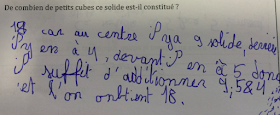 De combien de petits cubes ce solide est-il constitué ?
18 car au centre il y a 9 solide, derriere
il y en à 4, devant il y en à 5 donc
il suffit d'additionner 9; 5 & 4
et l'on obtient 18.